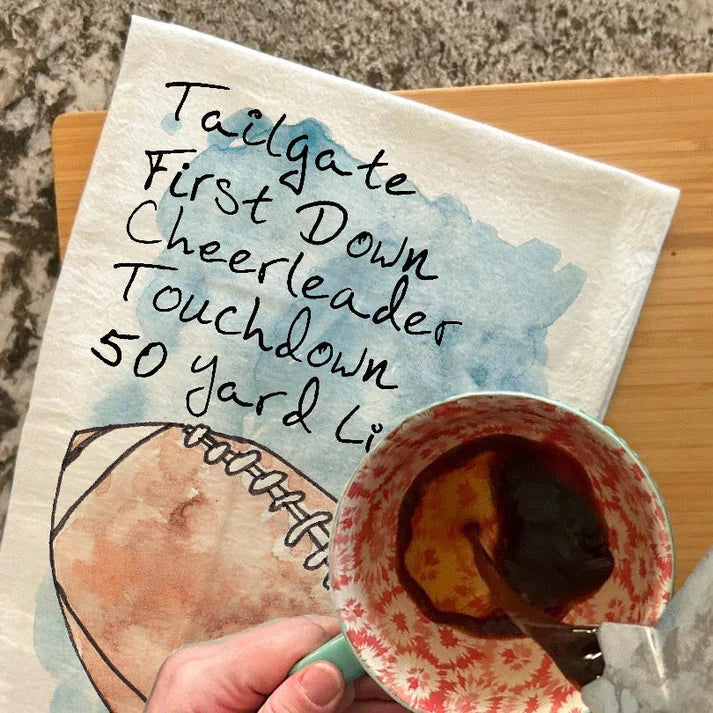 Tailgate
First Down
Cheerleader
Touchdown
50 yard Li